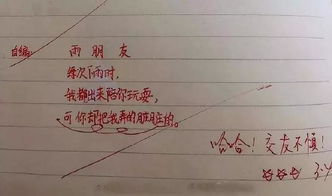 自编:
雨朋友
每次下雨时,
我都出来陪你玩耍,
可你却把我弄的脏脏的。
哈哈!交友不慎!
好好好